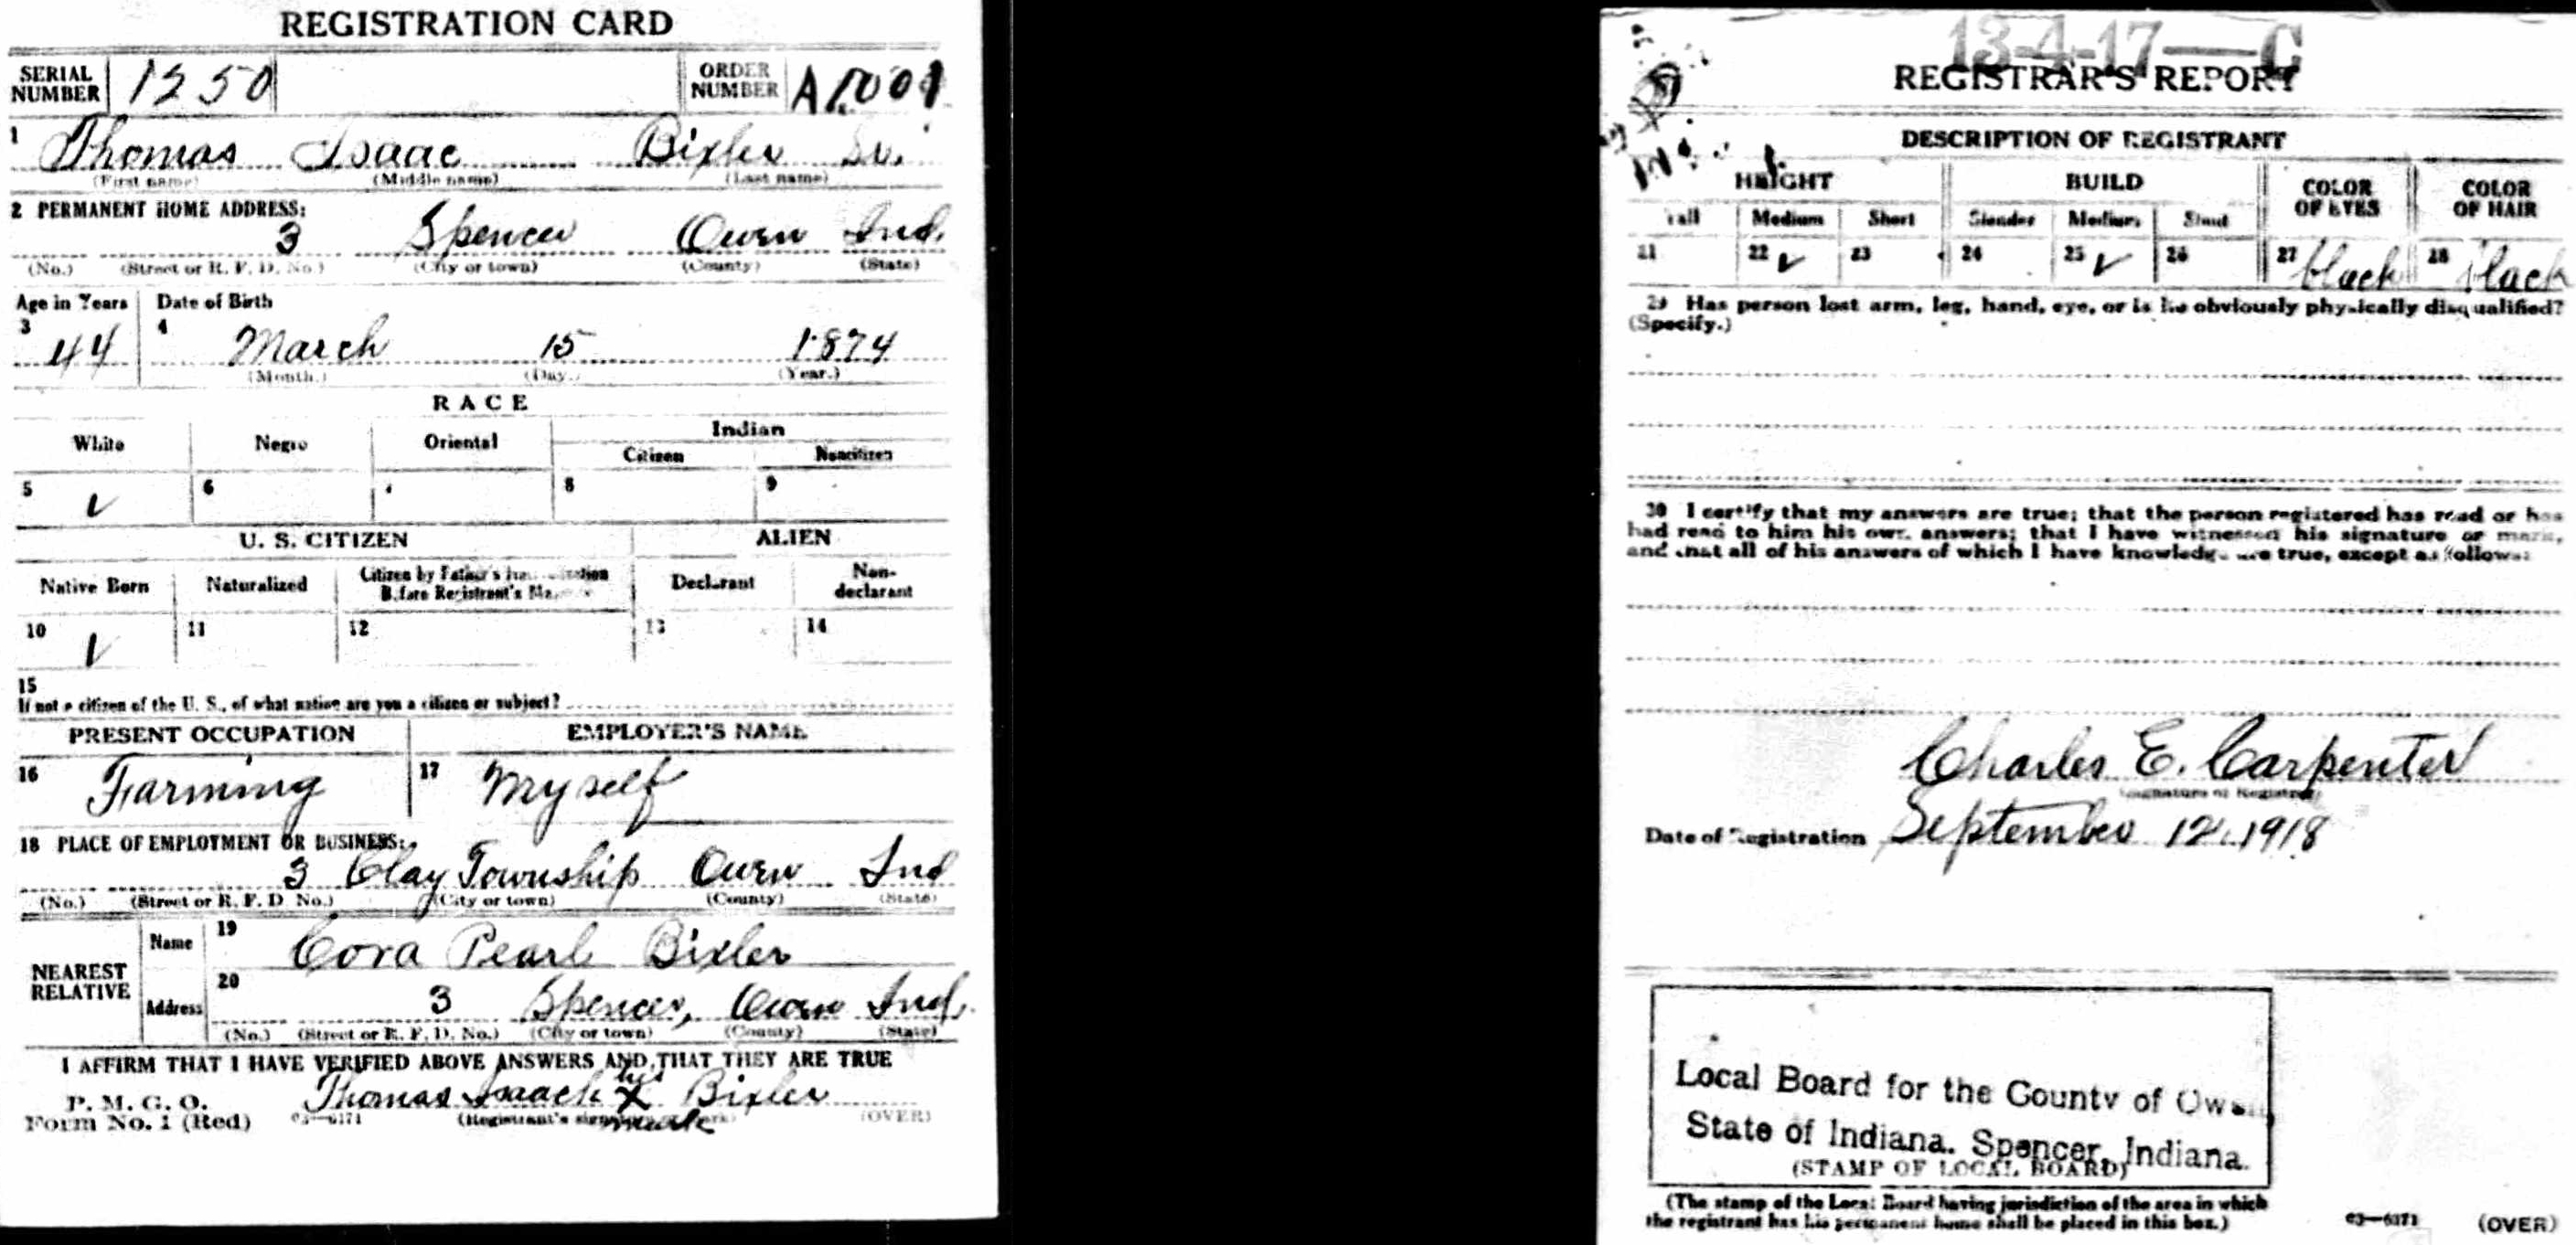 REGISTRATION CARD
SERIAL NUMBER 1250 ORDER NUMBER A1001
1 Thomas Isaac Bixler Sr.
(First name) (Middle name) (Last name)
2 PERMANENT HOME ADDRESS:
3 Spencer Owen Ind.
(No.) (Street or R. F. D. No.) (City or town) (County) (State)
Age in Years Date of Birth
3 44 4 March 15 1874
(Month.) (Day.) (Year.)
RACE
White Negro Oriental Indian
Citizen Noncitizen
5 ✓ 6 8 9
U. S. CITIZEN ALIEN
Native Born Naturalized Citizen by Father's Before Registrant's Declarant Non-declarant
10 ✓ 11 12 13 14
15
If not a citizen of the U. S., of what nation are you a citizen or subject?
PRESENT OCCUPATION EMPLOYER'S NAME
16 Farming 17 Myself
18 PLACE OF EMPLOYMENT OR BUSINESS:
3 Clay Township Owen Ind
(No.) (Street or R. F. D. No.) (City or town) (County) (State)
NEAREST RELATIVE
Name 19 Cora Pearl Bixler
Address 20 3 Spencer, Owen Ind.
(No.) (Street or R. F. D. No.) (City or town) (County) (State)
I AFFIRM THAT I HAVE VERIFIED ABOVE ANSWERS AND THAT THEY ARE TRUE
P. M. G. O.
Form No. 1 (Red) 03—6171 Thomas Isaach his X mark Bixler
(Registrant's signature or mark) (OVER)
13-4-17—C
REGISTRAR'S REPORT
DESCRIPTION OF REGISTRANT
HEIGHT BUILD COLOR OF EYES COLOR OF HAIR
Tall Medium Short Slender Medium Stout
21 22 ✓ 23 24 25 ✓ 26 27 black 28 black
29 Has person lost arm, leg, hand, eye, or is he obviously physically disqualified?
(Specify.)
30 I certify that my answers are true; that the person registered has read or has
had read to him his own answers; that I have witnessed his signature or mark,
and that all of his answers of which I have knowledge are true, except as follows:
Charles E. Carpenter
(Signature of Registrar)
Date of Registration September 12, 1918
Local Board for the County of Owen,
State of Indiana. Spencer, Indiana.
(STAMP OF LOCAL BOARD)
(The stamp of the Local Board having jurisdiction of the area in which
the registrant has his permanent home shall be placed in this box.)
03—6171 (OVER)